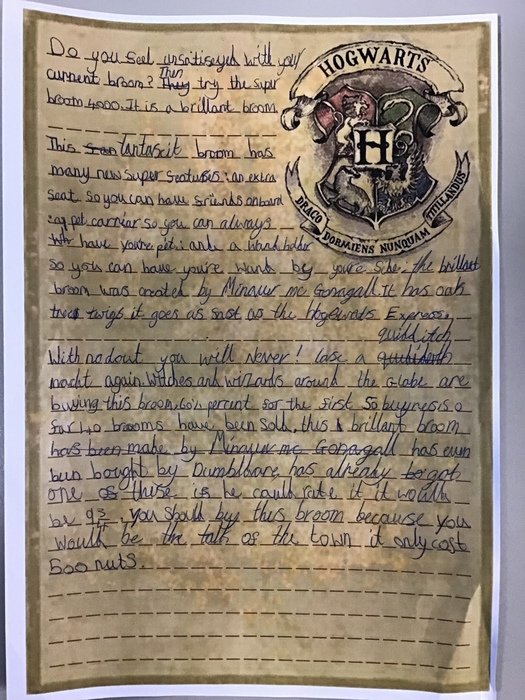 HOGWARTS
H
DRACO DORMIENS NUNQUAM TITILLANDUS
Do you feel unsatiseyed with your
current broom? Then try the super
broom 4000. It is a brillant broom
This fantascit broom has
many new super featuers: an extra
seat so you can have friends onboard
: a pet carriar so you can always
have youre pet: and a wand holder
so you can have you're wand by youre side: the brillant
broom was created by Minavur mc Gonagall. It has oak
twigs it goes as fast as the Hogewats Express,
quidditch
With no dout you will never! lose a
macht again. Witches and wizards around the globe are
buying this broom, 60% percent for the first 50 buyness
far 40 brooms have been sold, this brillant broom
has been made by Minavur mc Gonagall has even
been bought by Dumbldoare, has already
one of these is he could rate it it would
be 95, you should buy this broom because you
would be the talk of the town it only cost
500 nuts.